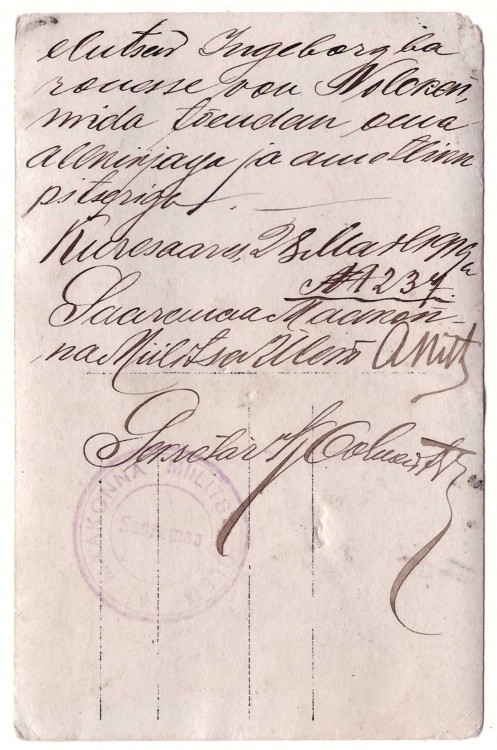 elutsev Ingeborg ba
ronesse von Nolcken,
mida tõendan oma
allkirjaga ja ametliku
pitseriga
Kuresaares, 28.
№ 1237.
Saaremaa Maakon
na Miilitsa Ülem
Sekretär
MAAKONNA MIILITS ÜLEM
Saaremaa